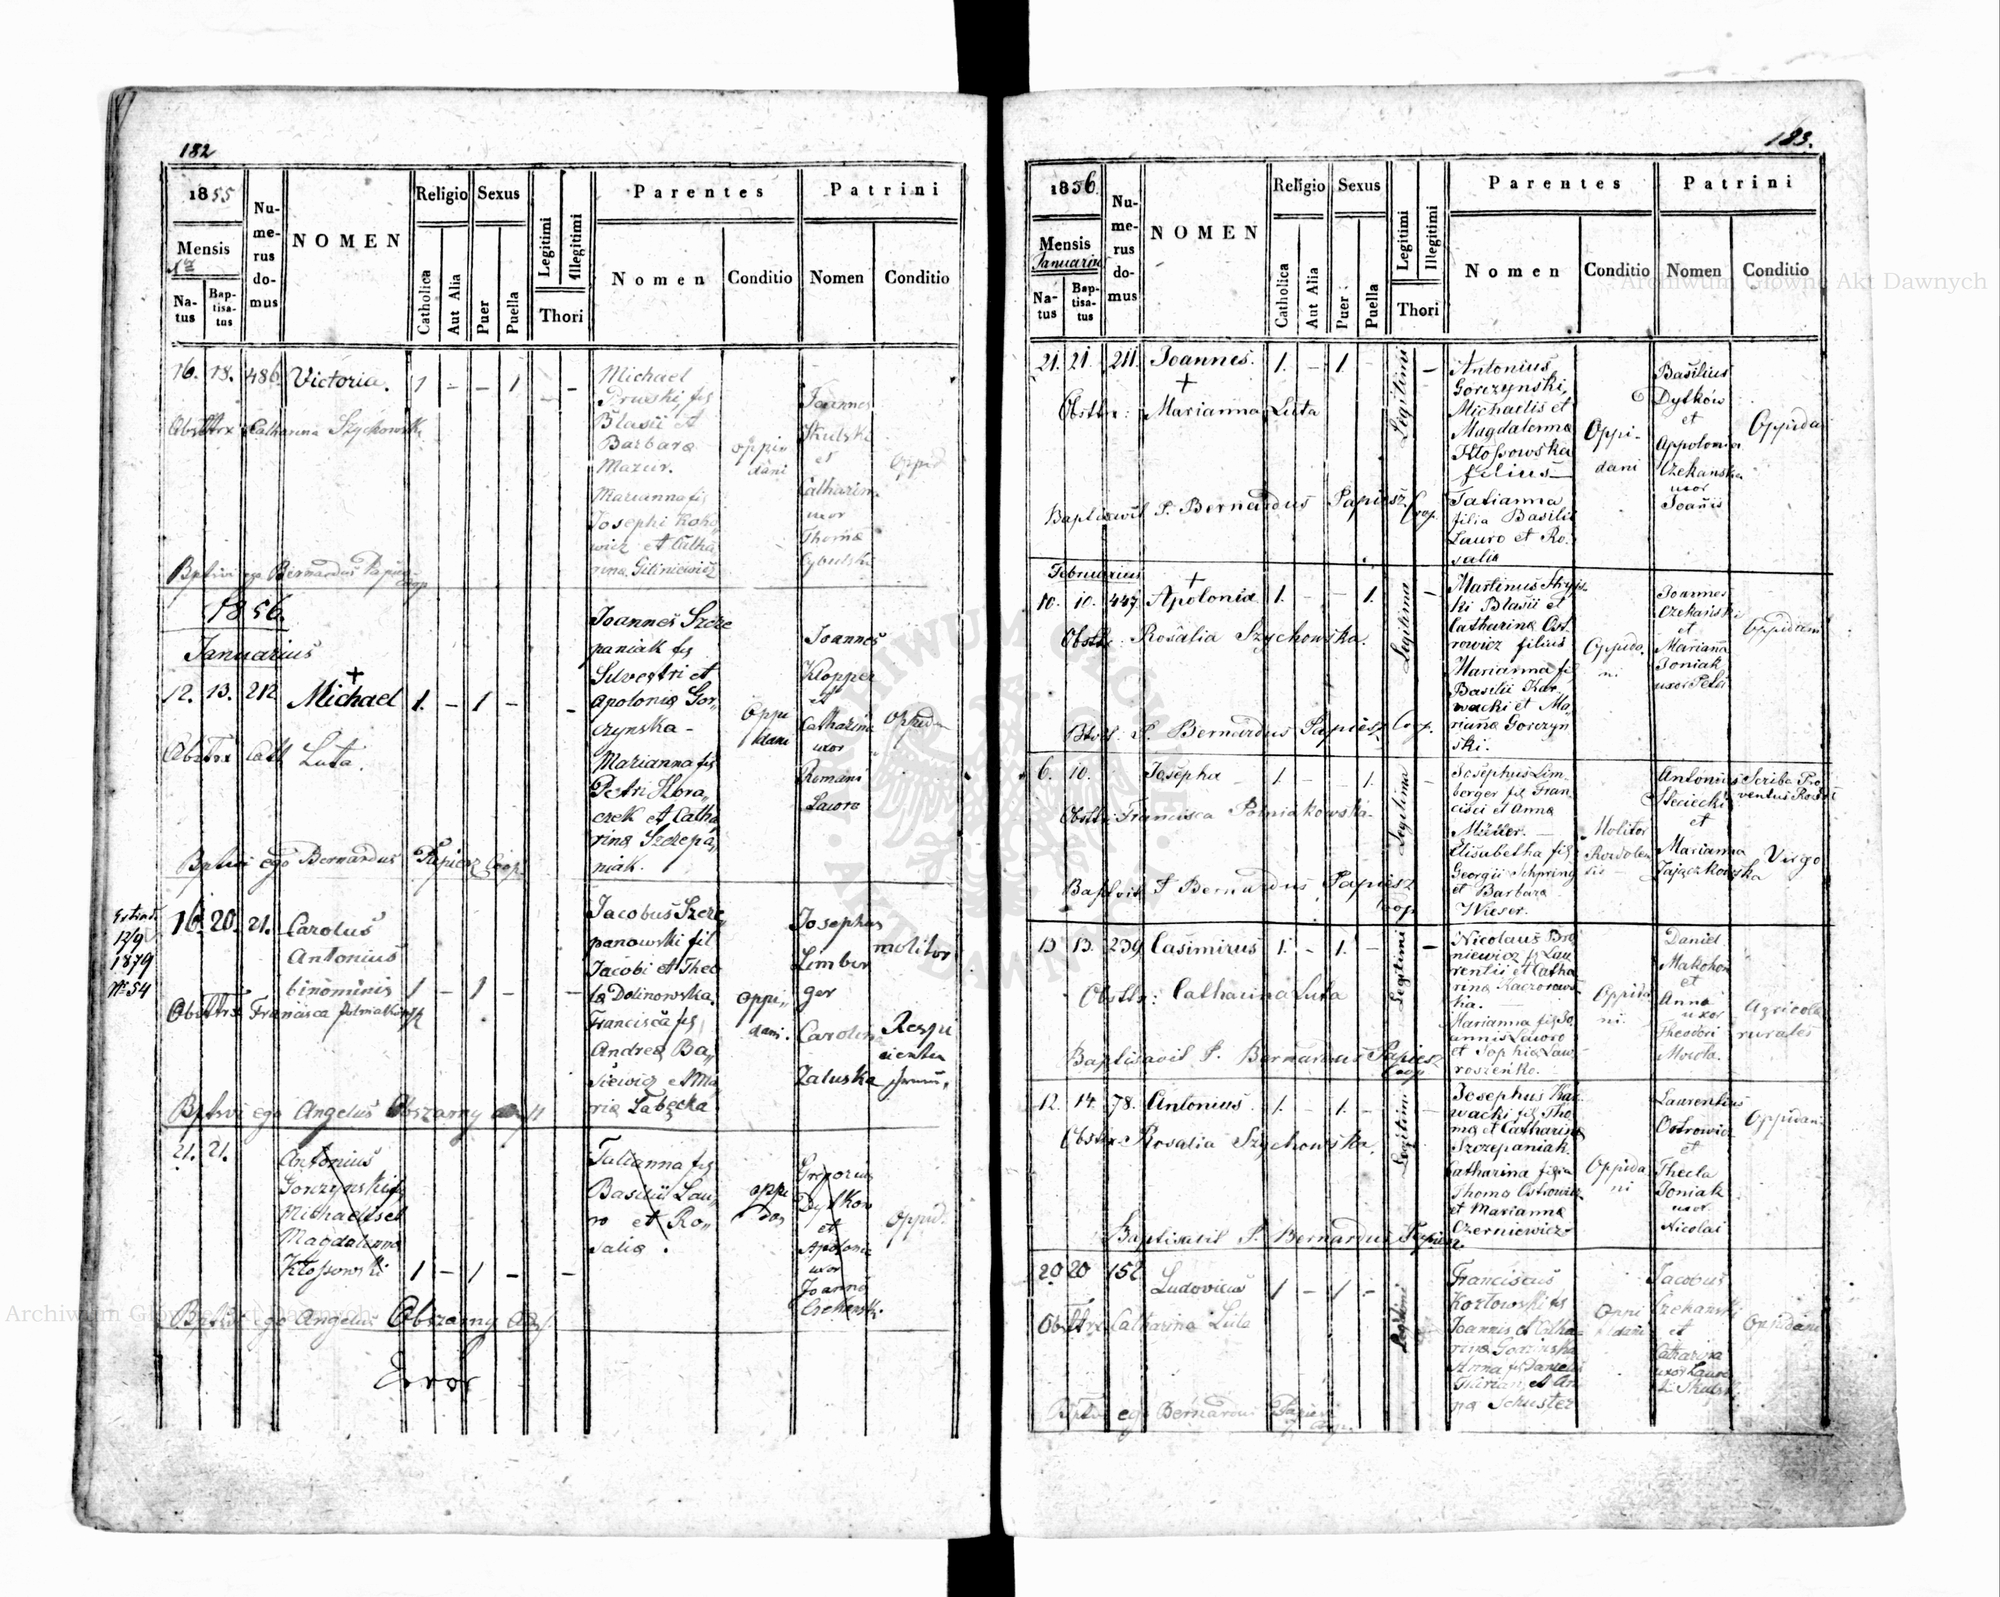 182
1855
Mensis
Natus
Baptisatus
Numerus domus
NOMEN
Religio
Catholica
Aut Alia
Sexus
Puer
Puella
Legitimi
Illegitimi
Thori
Parentes
Nomen
Conditio
Patrini
Nomen
Conditio
16. 18. 486 Victoria. 1 - - 1 -
Michael
Pruski fis
Blasii et
Barbara
Mazur.
Marianna fis
Josephi
et Catha
rina
oppi
dani
Joannes
Skulski
et
Catharina
uxor
Thoma
Cybulski
Oppid
Obsttrx Catharina Szychowska
Bptsvi ego Bernardus Papiesz
Coop
1856.
Januarius
12. 13. 212 Michael 1. - 1 - -
Joannes Szcze
paniak fis
Silvestri et
Apolonia Gor„
czynska -
Marianna fis
Petri Hora„
czek et Catha
rina Szczepa„
niak.
Oppi
dani
Joannes
Klopper
et
Catharina
uxor
Romani
Lawro
Oppid
Obstrx Cath Luta.
Bptsvi ego Bernardus Papiesz Coop
12/9
1879
No 54
16. 20. 21. Carolus
Antonius
binominis 1 - 1 -
Jacobus Szcze„
panowski fil
Jacobi et Theo
la Dolinowska.
Francisca fis,
Andrea Ba„
siewicz et Ma
ria Łabęcka
oppi„
dani.
Josephus
Limber
ger
Carolina
Zaluska
molitor
Obsttrx Francisca
Bptsvi ego Angelus Obszarny
21. 21. Antonius
Gorczynski fis
Michaelis et
Magdalenna
Kłossowski 1 - 1 - -
Tatianna fis
Basilii Law„
ro et Ro„
salia.
oppi
dos
Gregorius
Dytkow
et
Apolonia
uxor
Joannis
Czekanski.
Oppid.
Bptsvi ego Angelus Obszarny
Error
183.
1856.
Mensis
Januarius
Natus
Baptisatus
Numerus domus
NOMEN
Religio
Catholica
Aut Alia
Sexus
Puer
Puella
Legitimi
Illegitimi
Thori
Parentes
Nomen
Conditio
Patrini
Nomen
Conditio
21. 21. 211. Joannes. 1. - 1. - Legitimi -
Antonius
Gorczynski,
Michaelis et
Magdalenna
Kłossowska
filius
Tatianna
filia Basilii
Lauro et Ro-
salia
Oppi-
dani
Basilius
Dytkow
et
Appolonia
Czekanska
uxor
Joannis
Oppidan
Obsttr: Marianna Luta
Baptisavit P. Bernardus Papiesz Coop.
Februarius
10. 10. 447 Apolonia 1. - - 1. Legitima -
Martinus
ki Blasii et
Catharina Ost
rowicz filius
Marianna fil
Basilii Kar-
wacki et Ma
rianna Gorczyn
ski.
Oppida
ni
Joannes
Czekanski
et
Marianna
Toniak
uxor Petri
Obsttr: Rosalia Szychowska.
Btvit P. Bernardus Papiesz Coop.
6. 10. Josepha 1. - - 1. Legitima -
Josephus Lim-
berger fil Fran-
cisci et Anna
Müller.
Elisabetha fis
Georgii Schpring
et Barbara
Wieser.
Molitor
Antonius
Sieciecki
et
Marianna
Zajączkowska
Scriba Pro
ventus
Virgo
Obsttr: Francisca Polniakowska
Baptvit P Bernardus Papiesz
Coop
13 13. 239 Casimirus 1. - 1. - Legitimi -
Nicolaus Bro
niewicz fis Lau
rentii et Catha
rina Kaczorows-
ka.
Marianna fis Jo
annis Lawro
et Sophia Law-
roszenko.
Oppida
ni.
Daniel
Makohon
et
Anna
uxor
Theodori
Agricola
rurales
Obsttr: Catharina Luta
Baptisavit P. Bernardus Papiesz
Coop
12. 14. 78. Antonius. 1. - 1. - Legitimi -
Josephus Kar
wacki fis Tho
ma et Catharina
Szczepaniak.
Catharina filia
Thoma Ostrowicz
et Marianna
Czerniewicz
Oppida
ni
Laurentius
Ostrowicz
et
Thecla
Toniak
uxor
Nicolai
Oppidani
Obsttr: Rosalia Szychowska.
Baptisavit P. Bernardus Papiesz
20 20 152 Ludovicus 1 - 1 - Legitimi
Franciscus
Kozłowski fis
Joannis et Catha
rina
Anna fis Danielis
et An
na Schuster
Oppi
dani
Jacobus
Czekanski
et
Catharina
uxor
Oppidani
Obsttrx Catharina Luta
Bptsvi ego Bernardus Papiesz
Archiwum Główne Akt Dawnych
Archiwum Główne Akt Dawnych
ARCHIWUM GŁÓWNE AKT DAWNYCH